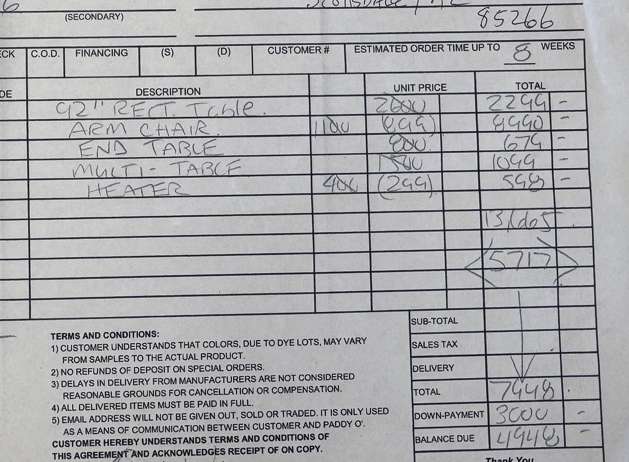 (SECONDARY)
85266
C.O.D. FINANCING (S) (D) CUSTOMER # ESTIMATED ORDER TIME UP TO 8 WEEKS
DESCRIPTION UNIT PRICE TOTAL
92" RECT. Table. 2600 2299 -
ARM CHAIR. 1100 (899) 8990 -
END TABLE 800 679 -
MULTI-TABLE 1500 1099 -
HEATER 400 (299) 598 -
13,665
<5717>
SUB-TOTAL
TERMS AND CONDITIONS:
1) CUSTOMER UNDERSTANDS THAT COLORS, DUE TO DYE LOTS, MAY VARY
FROM SAMPLES TO THE ACTUAL PRODUCT.
2) NO REFUNDS OF DEPOSIT ON SPECIAL ORDERS.
3) DELAYS IN DELIVERY FROM MANUFACTURERS ARE NOT CONSIDERED
REASONABLE GROUNDS FOR CANCELLATION OR COMPENSATION.
4) ALL DELIVERED ITEMS MUST BE PAID IN FULL.
5) EMAIL ADDRESS WILL NOT BE GIVEN OUT, SOLD OR TRADED. IT IS ONLY USED
AS A MEANS OF COMMUNICATION BETWEEN CUSTOMER AND PADDY O'.
CUSTOMER HEREBY UNDERSTANDS TERMS AND CONDITIONS OF
THIS AGREEMENT AND ACKNOWLEDGES RECEIPT OF ON COPY.
SALES TAX
DELIVERY
TOTAL 7948
DOWN-PAYMENT 3000 -
BALANCE DUE 4948 -
Thank You